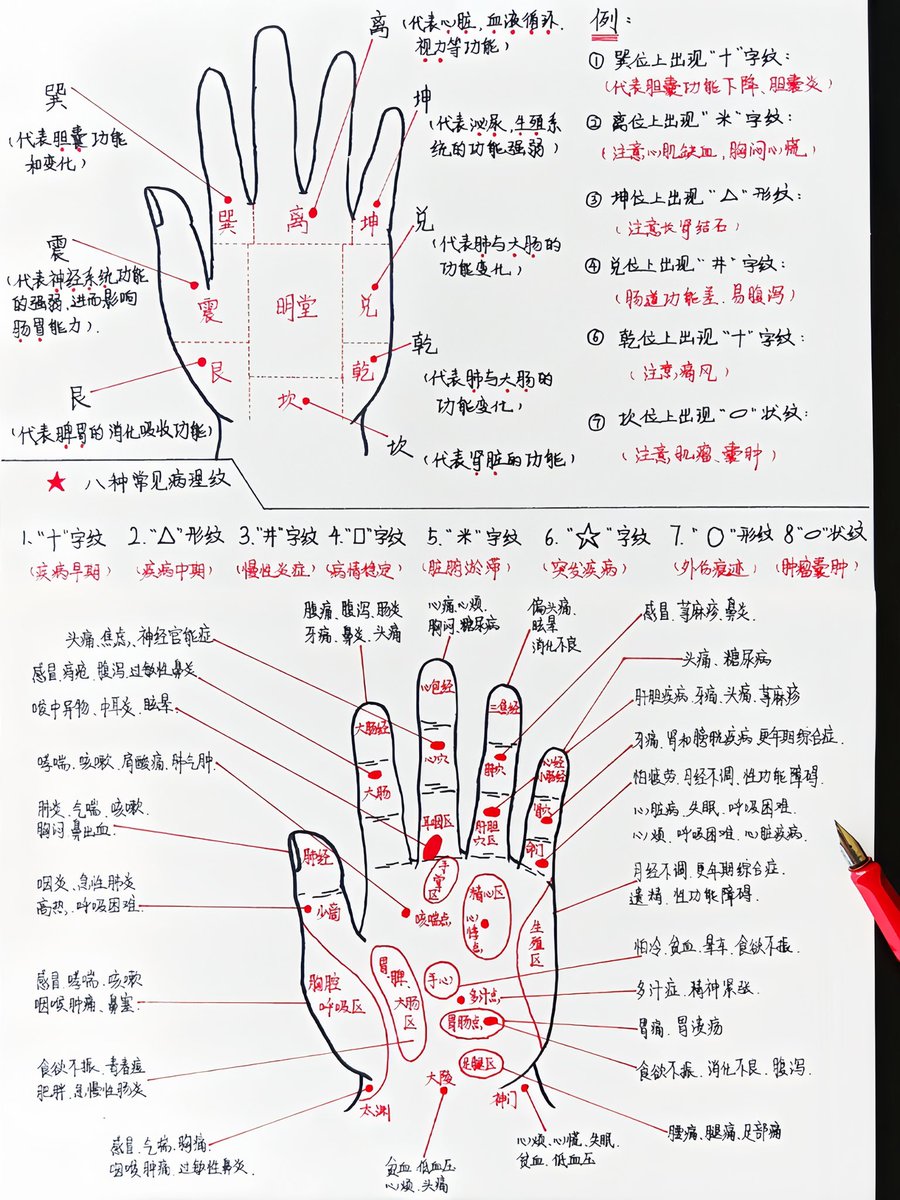 离
(代表心脏,血液循环.
视力等功能)
巽
(代表胆囊功能
和变化)
坤
(代表泌尿,生殖系
统的功能强弱)
兑
(代表肺与大肠的
功能变化)
震
(代表神经系统功能
的强弱,进而影响
肠胃能力).
乾
(代表肺与大肠的
功能变化)
艮
(代表脾胃的消化吸收功能)
坎
(代表肾脏的功能)
巽 离 坤
震 明堂 兑
艮 乾
坎
例:
① 巽位上出现"十"字纹:
(代表胆囊功能下降、胆囊炎)
② 离位上出现"米"字纹:
(注意心肌缺血,胸闷心慌)
③ 坤位上出现"△"形纹:
(注意长肾结石)
④ 兑位上出现"井"字纹:
(肠道功能差.易腹泻)
⑥ 乾位上出现"十"字纹:
(注意痛风)
⑦ 坎位上出现"○"状纹:
(注意肌瘤、囊肿)
★ 八种常见病理纹
1."十"字纹 2."△"形纹 3."井"字纹 4."口"字纹 5."米"字纹 6."☆"字纹 7."○"形纹 8"○"状纹
(疾病早期) (疾病中期) (慢性炎症) (病情稳定) (脏腑淤滞) (突发疾病) (外伤痕迹) (肿瘤囊肿)
腹痛、腹泻、肠炎
牙痛、鼻炎、头痛
心痛、心烦、
胸闷、糖尿病
偏头痛、
眩晕
消化不良
感冒、荨麻疹、鼻炎.
头痛、焦虑、神经官能症
感冒、痔疮、腹泻、过敏性鼻炎
咳中异物、中耳炎、眩晕
哮喘、咳嗽、肩酸痛、肺气肿
肺炎、气喘、咳嗽
胸闷、鼻出血.
咽炎、急性肺炎
高热、呼吸困难.
感冒、哮喘、咳嗽
咽喉肿痛、鼻塞
食欲不振、青春痘
肥胖、急慢性肠炎
感冒、气喘、胸痛
咽喉肿痛、过敏性鼻炎.
头痛、糖尿病
肝胆疾病、牙痛、头痛、荨麻疹
牙痛、肾和膀胱疾病、更年期综合症.
怕疲劳、月经不调、性功能障碍.
心脏病、失眠、呼吸困难
心烦、呼吸困难、心脏疾病.
月经不调、更年期综合症.
遗精、性功能障碍.
怕冷、贫血、晕车、食欲不振.
多汗症、精神紧张.
胃痛、胃溃疡
食欲不振、消化不良、腹泻.
腰痛、腿痛、足部痛
贫血、低血压
心烦、头痛
心烦、心慌、失眠.
贫血、低血压
大肠经 心包经 三焦经 心经
小肠经
大肠 心穴 肺穴 肾穴
耳咽区 肝胆
穴区 命门
肺经
少商
手掌区
咳喘点
精心区
心悸点
生殖区
胸腔
呼吸区
胃、脾、
大肠区
手心
多汗点
胃肠点
足腿区
太渊 大陵 神门